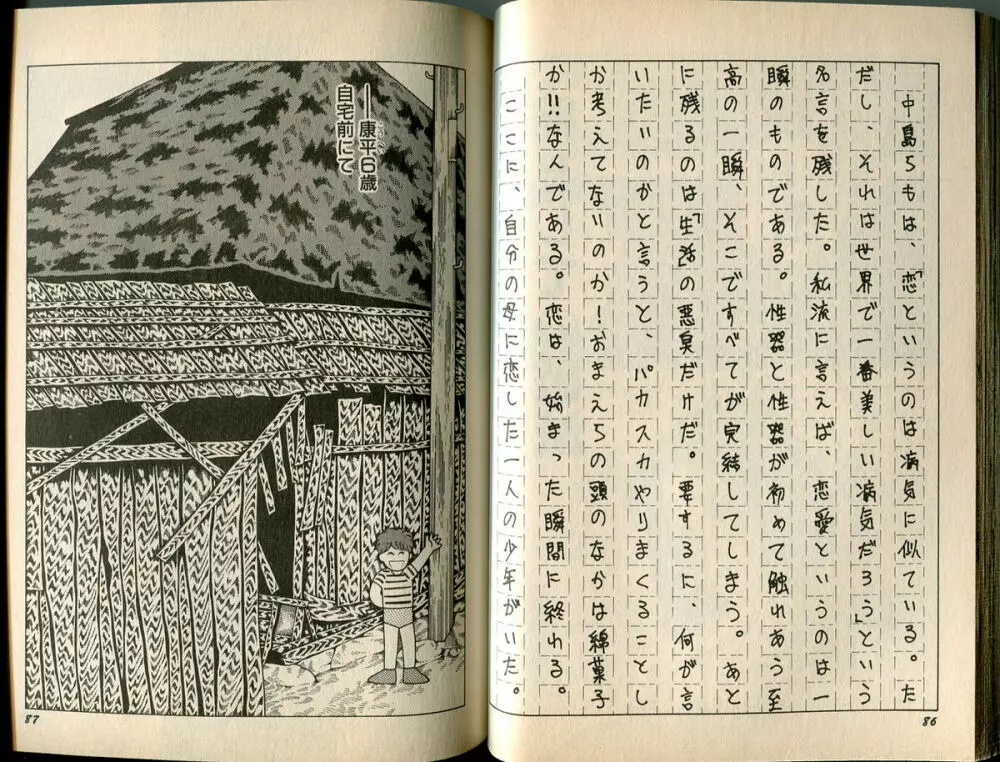 中島らもは、「恋というのは病気に似ている。た
だし、それは世界で一番美しい病気だろう」という
名言を残した。私流に言えば、恋愛というのは一
瞬のものである。性器と性器が初めて触れあう至
高の一瞬、そこですべてが完結してしまう。あと
に残るのは「生活の悪臭だけだ。要するに、何が言
いたいのかと言うと、パカスカやりまくることし
か考えてないのか!おまえらの頭のなかは綿菓子
か!!なんである。恋は、始まった瞬間に終わる。
ここに、自分の母に恋した一人の少年がいた。
86
――康平6歳
自宅前にて
87